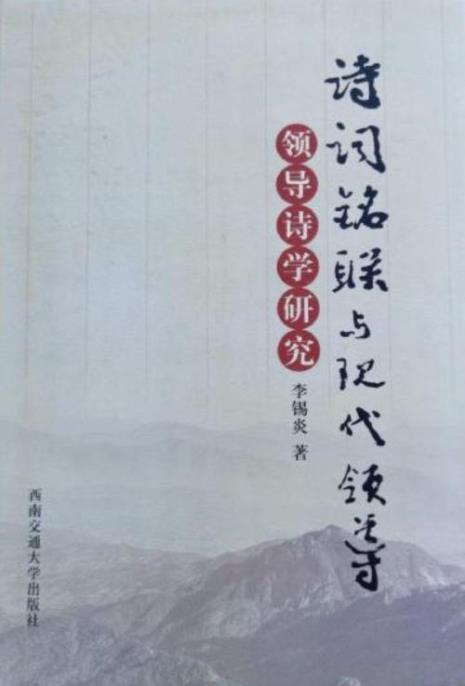 诗词铭联与现代领导
领导诗学研究
李锡炎 著
西南交通大学出版社